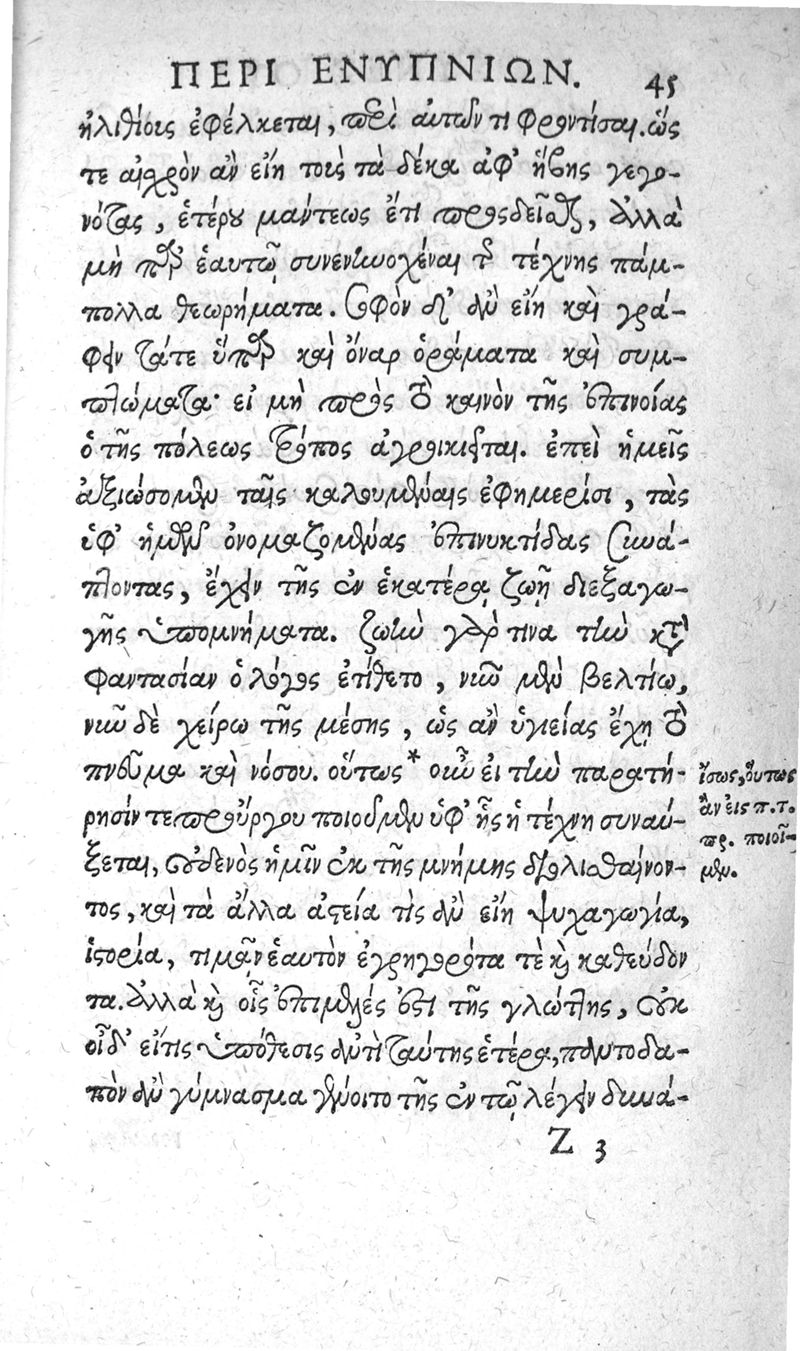 ΠΕΡΙ ΕΝΥΠΝΙΩΝ. 45
ἠλιθίοις ἐφέλκεται, περὶ αὐτῶν τι φροντίσαι. ὥς
τε αἰσχρὸν ἂν εἴη τοῖς τὰ δέκα ἀφ' ἥβης γεγο-
νότας, ἑτέρου μάντεως ἔτι προςδεῖσθαι, ἀλλὰ
μὴ παρ' ἑαυτῷ συνενηνοχέναι τῆς τέχνης πάμ-
πολλα θεωρήματα. σοφὸν δ' ἂν εἴη καὶ γρά-
φειν τάτε ὕπαρ καὶ ὄναρ ὁράματα καὶ συμ-
πτώματα· εἰ μὴ πρὸς τὸ καινὸν τῆς ἐπινοίας
ὁ τῆς πόλεως τρόπος ἀγροικιεῖται. ἐπεὶ ἡμεῖς
ἀξιώσομεν ταῖς καλουμέναις ἐφημερίσι, τὰς
ὑφ' ἡμῶν ὀνομαζομένας ἐπινυκτίδας συνά-
πτοντας, ἔχειν τῆς ἐν ἑκατέρᾳ ζωῇ διεξαγω-
γῆς ὑπομνήματα. ζωὴν γάρ τινα τὴν κατὰ
φαντασίαν ὁ λόγος ἐτίθετο, νῦν μὲν βελτίω,
νῦν δὲ χείρω τῆς μέσης, ὡς ἂν ὑγιείας ἔχῃ τὸ
πνεῦμα καὶ νόσου. οὕτως* οὖν εἰ τὴν παρατή-
ρησίν τε προὔργου ποιούμεν ὑφ' ἧς ἡ τέχνη συναύ-
ξεται, οὐδενὸς ἡμῖν ἐκ τῆς μνήμης διολισθαίνον-
τος, καὶ τὰ ἄλλα ἀστεία τὶς ἂν εἴη ψυχαγωγία,
ἱστορία, τιμᾷν ἑαυτὸν ἐγρηγορότα τὲ καὶ καθεύδον
τα. ἀλλὰ καὶ οἷς ἐπιμελές ἐστι τῆς γλώττης, οὐκ
οἶδ' εἴτις ὑπόθεσις ἀντὶ ταύτης ἑτέρα, πολυτοδα-
πὸν ἂν γύμνασμα γένοιτο τῆς ἐν τῷ λέγειν δυνά-
ἴσως, οὕτως
ἂν εἰς π.τ.
πρ. ποιοῖ-
μεν.
Z 3